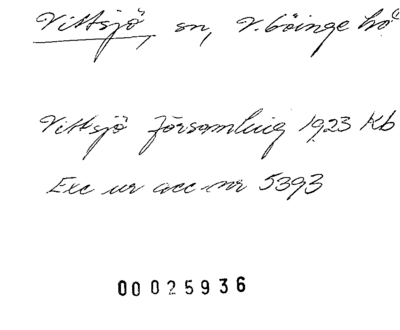 Vittsjö, sn, V. Göinge hd
Vittsjö församling 1923 Kb
Exc ur acc nr 5393
00025936